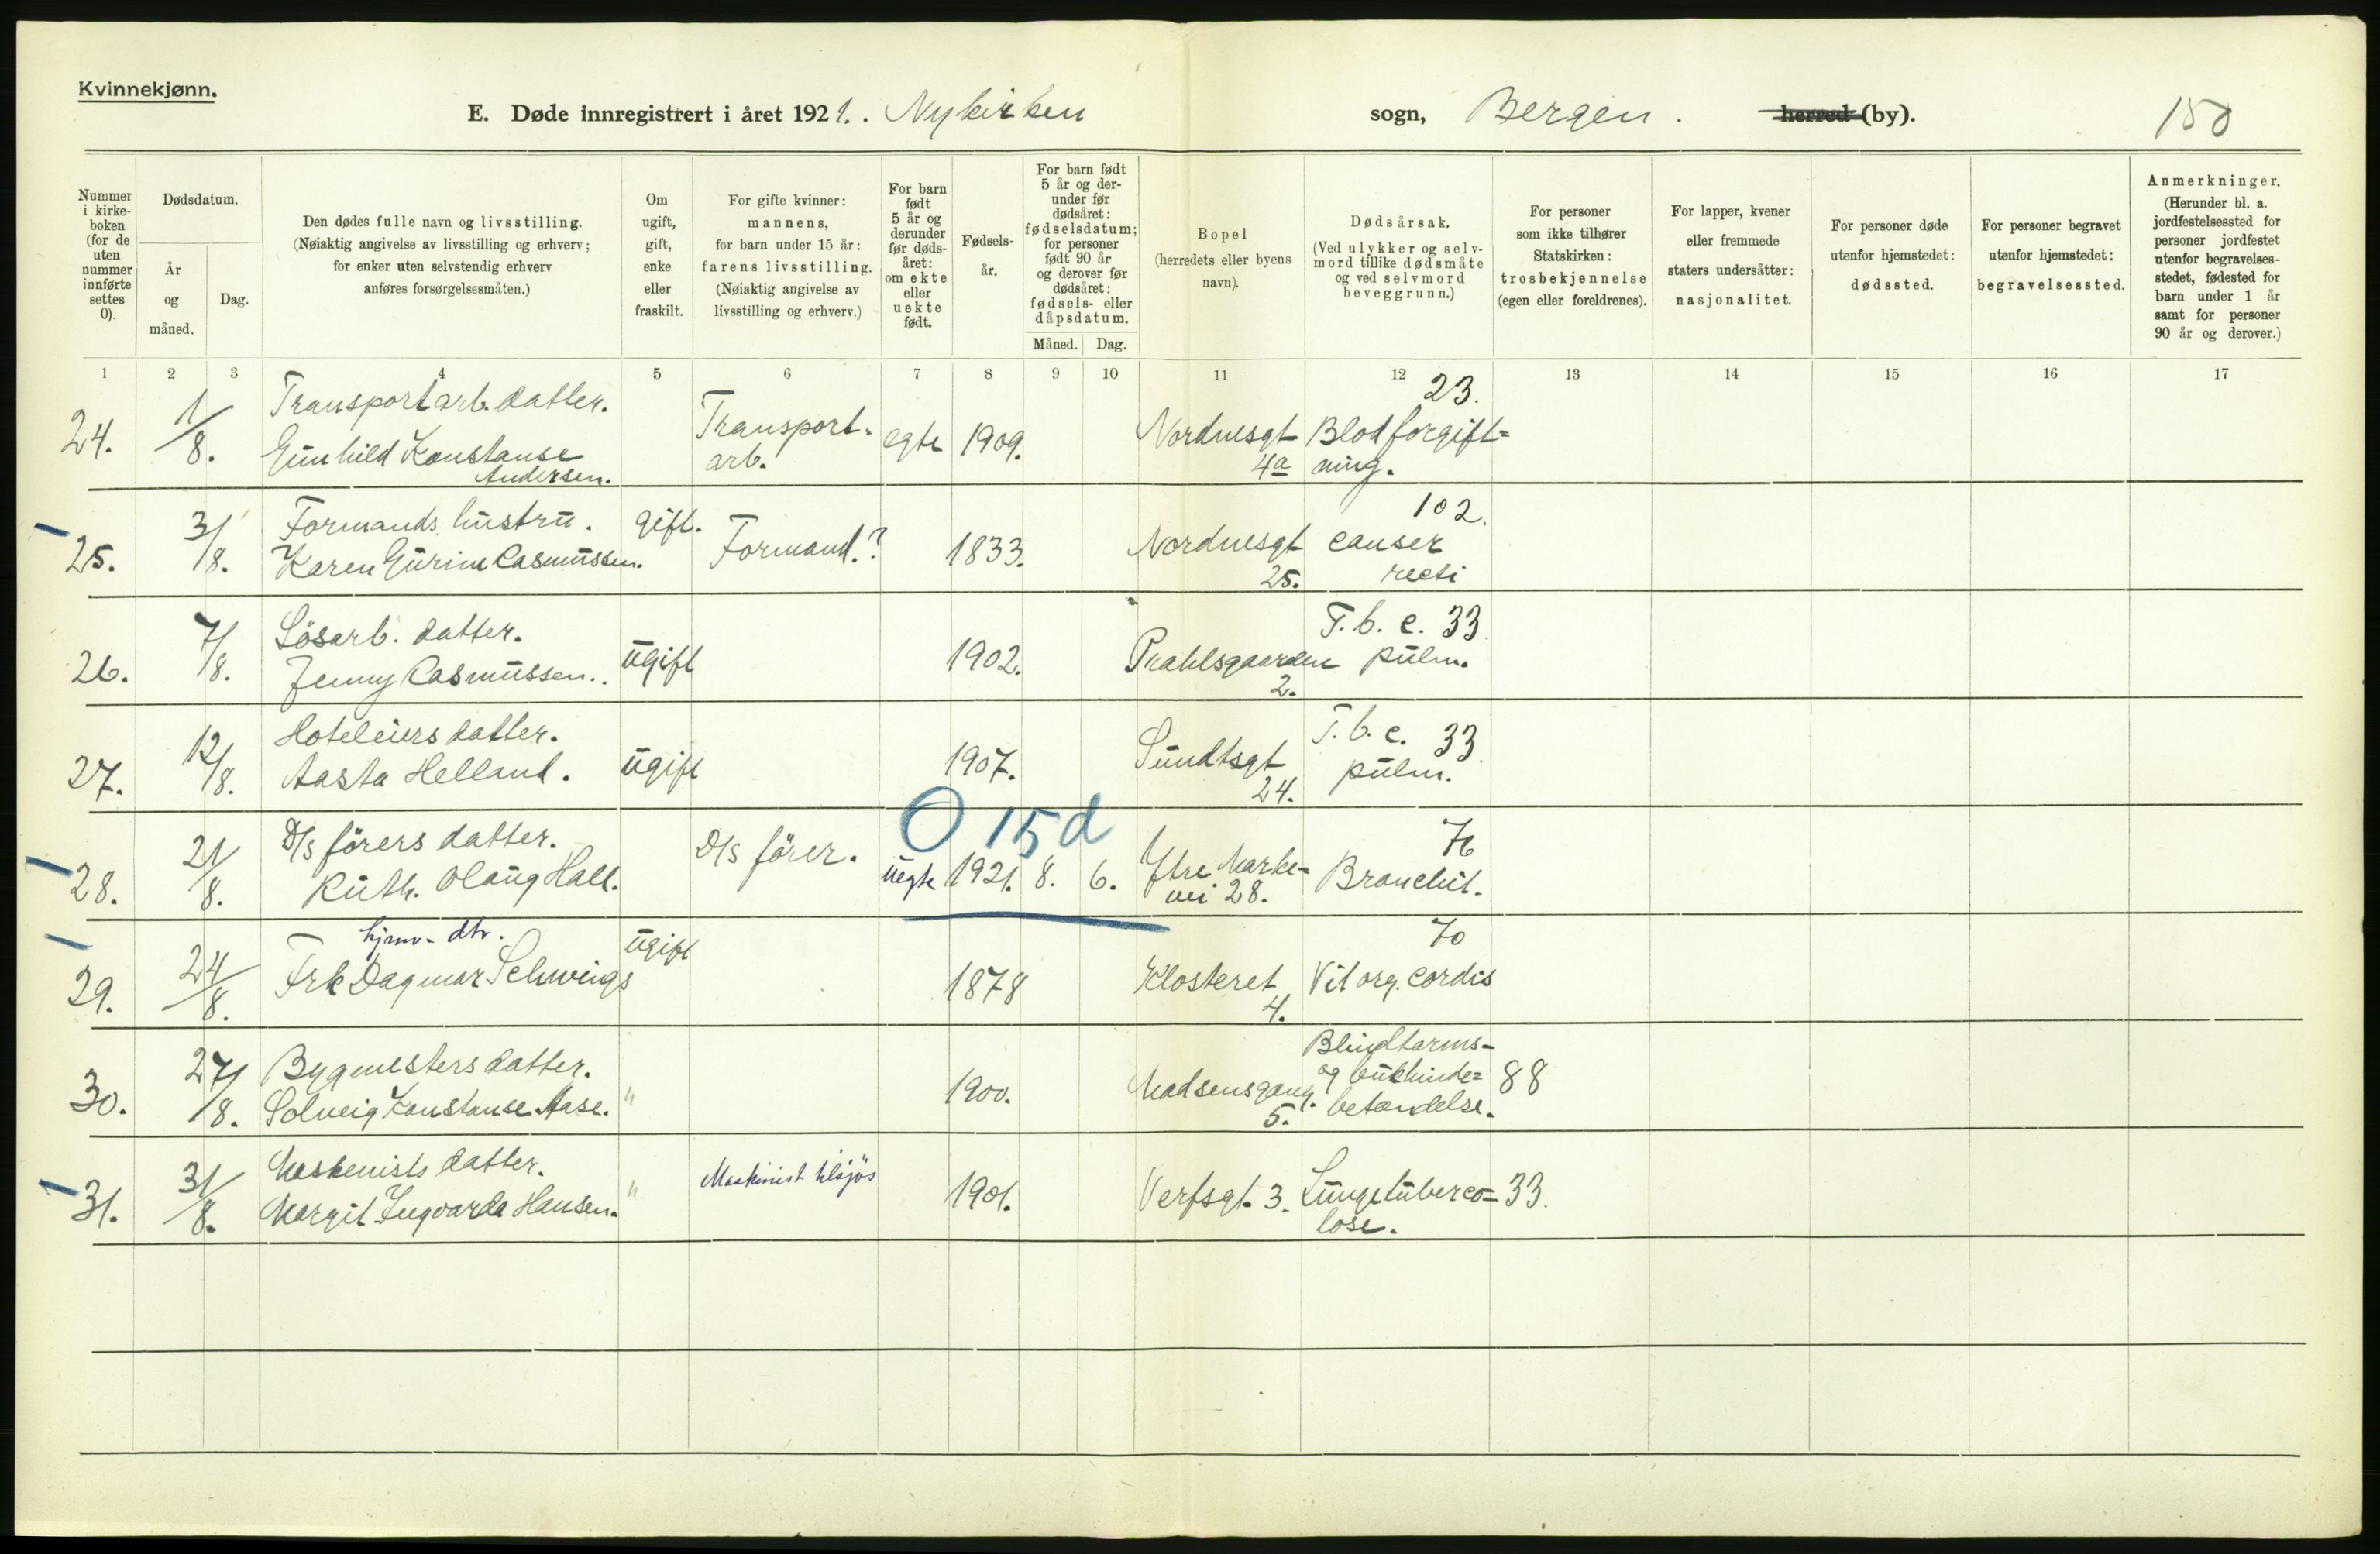 Kvinnekjønn.
E. Døde innregistrert i året 1921. . Nykirken sogn, Bergen . herred (by). 150
Nummer i kirke-boken (for de uten nummer innførte settes 0).
Dødsdatum.
År og måned.
Dag.
Den dødes fulle navn og livsstilling.
(Nøiaktig angivelse av livsstilling og erhverv;
for enker uten selvstendig erhverv
anføres forsørgelsesmåten.)
Om ugift, gift, enke eller fraskilt.
For gifte kvinner:
mannens,
for barn under 15 år:
farens livsstilling.
(Nøiaktig angivelse av
livsstilling og erhverv.)
For barn født 5 år og derunder før døds-året: om ekte eller uekte født.
Fødsels-år.
For barn født 5 år og der-under før dødsåret: fødselsdatum; for personer født 90 år og derover før dødsåret: fødsels- eller dåpsdatum.
Måned. Dag.
Bopel
(herredets eller byens
navn).
Dødsårsak.
(Ved ulykker og selv-
mord tillike dødsmåte
og ved selvmord
beveggrunn.)
For personer
som ikke tilhører
Statskirken:
trosbekjennelse
(egen eller foreldrenes).
For lapper, kvener
eller fremmede
staters undersåtter:
nasjonalitet.
For personer døde
utenfor hjemstedet:
dødssted.
For personer begravet
utenfor hjemstedet:
begravelsessted.
Anmerkninger.
(Herunder bl. a.
jordfestelsessted for
personer jordfestet
utenfor begravelses-
stedet, fødested for
barn under 1 år
samt for personer
90 år og derover.)
1 2 3 4 5 6 7 8 9 10 11 12 13 14 15 16 17
24. 1/8. Transportarb. datter.
Gunhild Konstanse
Andersen.
Transport.
arb.
egte 1909. Nordnesgt
4a
23.
Blodforgift=
ning.
25. 3/8. Formands hustru.
Karen Gurine Rasmussen.
gift. Formand.? 1833. Nordnesgt
25.
102.
canser
recti
26. 7/8. Løsarb. datter.
Jenny Rasmussen..
ugift 1902. Prahlsgaarden
2.
T.b.c. 33.
pulm.
27. 12/8. Hoteleiers datter.
Aasta Helland.
ugift 1907. Sundtsgt
24.
T.b.c. 33
pulm.
0 15 d
28. 21/8. D/s förers datter.
Ruth. Olaug Hall.
D/s förer. uegte 1921. 8. 6. Ytre Marke=
vei 28.
76
Bronchit.
29. 24/8. hjmv. dtr.
Frk Dagmar Schwings
ugift 1878 Klosteret
4.
70
Vit org. cordis
30. 27/8. Bygmesters datter.
Solveig Konstanse Aase.
" 1900. Madsensgang.
5.
Blindtarms-
og bukhinde= 88
betændelse.
31. 31/8. Maskenists datter.
Margit Ingvarda Hansen.
" Maskinist tilsjøs 1901. Verfsgt. 3. Lungetuberco= 33.
lose.